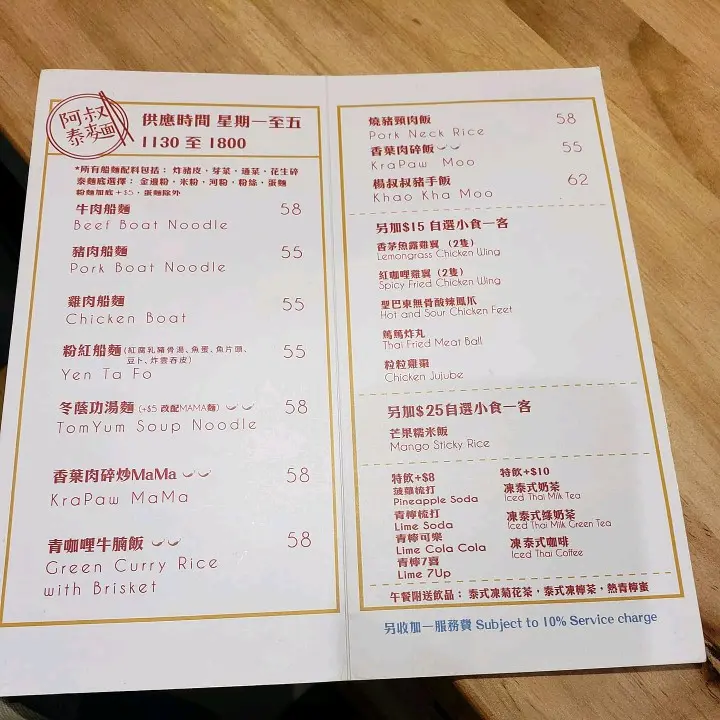 阿叔
泰麵
供應時間 星期一至五
1130 至 1800
*所有船麵配料包括： 炸豬皮、芽菜、通菜、花生碎
泰麵底選擇： 金邊粉、米粉、河粉、粉絲、蛋麵
粉麵加底 +$5，蛋麵除外
牛肉船麵 58
Beef Boat Noodle
豬肉船麵 55
Pork Boat Noodle
雞肉船麵 55
Chicken Boat
粉紅船麵 (紅腐乳豬骨湯、魚蛋、魚片頭、 55
豆卜、炸雲吞皮)
Yen Ta Fo
冬蔭功湯麵 (+$5 改配MAMA麵) 58
TomYum Soup Noodle
香葉肉碎炒MaMa 58
KraPaw MaMa
青咖哩牛腩飯 58
Green Curry Rice
with Brisket
燒豬頸肉飯 58
Pork Neck Rice
香葉肉碎飯 55
KraPaw Moo
楊叔叔豬手飯 62
Khao Kha Moo
另加$15 自選小食一客
香茅魚露雞翼 (2隻)
Lemongrass Chicken Wing
紅咖哩雞翼 (2隻)
Spicy Fried Chicken Wing
聖巴東無骨酸辣鳳爪
Hot and Sour Chicken Feet
篤篤炸丸
Thai Fried Meat Ball
粒粒雞棗
Chicken Jujube
另加$25自選小食一客
芒果糯米飯
Mango Sticky Rice
特飲+$8
菠蘿梳打
Pineapple Soda
青檸梳打
Lime Soda
青檸可樂
Lime Cola Cola
青檸7喜
Lime 7Up
特飲+$10
凍泰式奶茶
Iced Thai Milk Tea
凍泰式綠奶茶
Iced Thai Milk Green Tea
凍泰式咖啡
Iced Thai Coffee
午餐附送飲品： 泰式凍菊花茶，泰式凍檸茶，熱青檸蜜
另收加一服務費 Subject to 10% Service charge